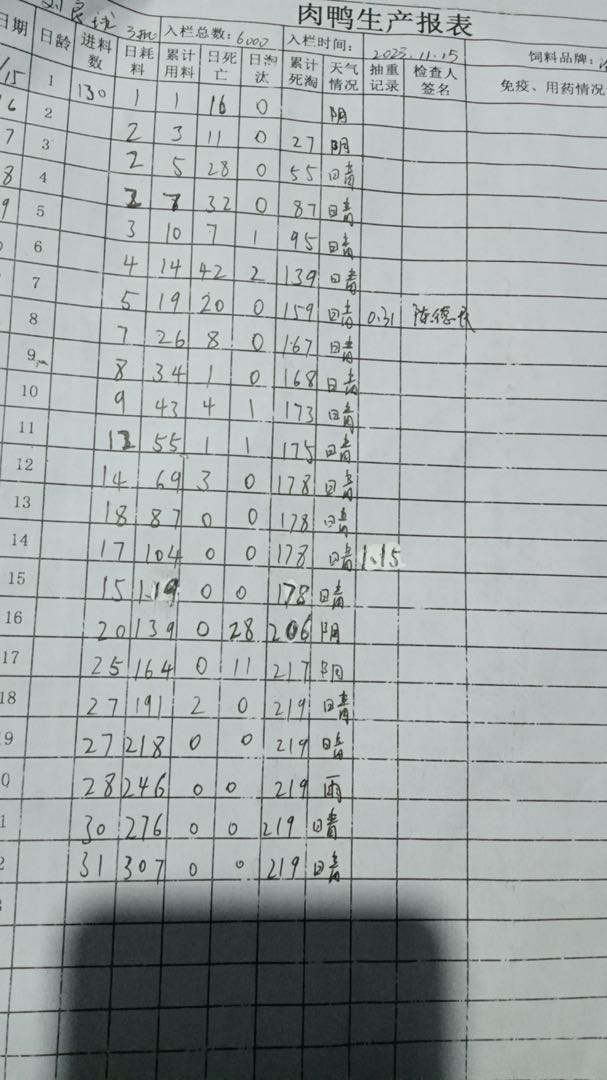 肉鸭生产报表
入栏总数:6000 入栏时间: 2025.11.15 饲料品牌:
日期 日龄 进料数 日耗料 累计用料 日死亡 日淘汰 累计死淘 天气情况 抽重记录 检查人签名 免疫、用药情况
/15 1 130 1 1 16 0 阴
6 2 2 3 11 0 27 阴
7 3 2 5 28 0 55 晴
8 4 2 7 32 0 87 晴
9 5 3 10 7 1 95 晴
6 4 14 42 2 139 晴
7 5 19 20 0 159 晴 0.31
8 7 26 8 0 167 晴
9 8 34 1 0 168 晴
10 9 43 4 1 173 晴
11 12 55 1 1 175 晴
12 14 69 3 0 178 晴
13 18 87 0 0 178 晴
14 17 104 0 0 178 晴 1.15
15 15 119 0 0 178 晴
16 20 139 0 28 206 阴
17 25 164 0 11 217 阴
18 27 191 2 0 219 晴
9 27 218 0 0 219 晴
0 28 246 0 0 219 雨
1 30 276 0 0 219 晴
2 31 307 0 0 219 晴